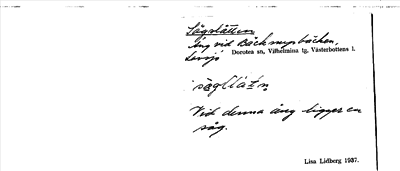 Sågslåtten
Äng vid Bäckmyrbäcken,
Dorotea sn, Vilhelmina tg, Västerbottens l.
Vid denna äng ligger en
såg.
Lisa Lidberg 1937.